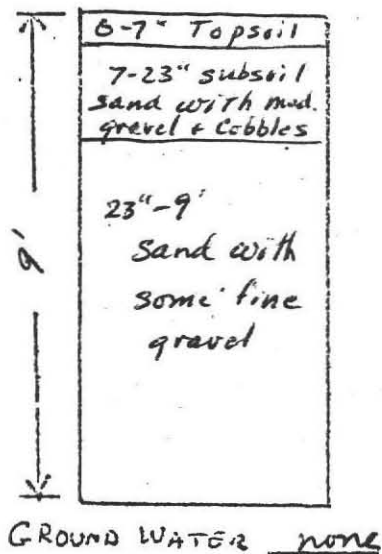 0-7" Topsoil
7-23" subsoil
sand with med.
gravel + Cobbles
9'
23"-9'
Sand with
some fine
gravel
GROUND WATER none